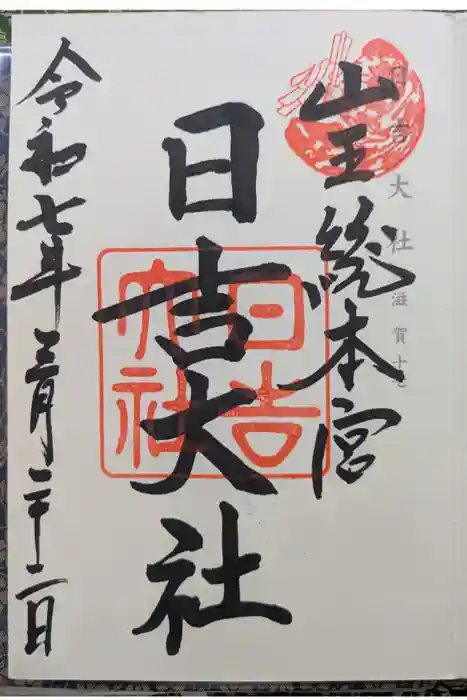 日吉大社 滋賀十七
山王総本宮
日吉大社
日吉
大社
令和七年三月二十二日